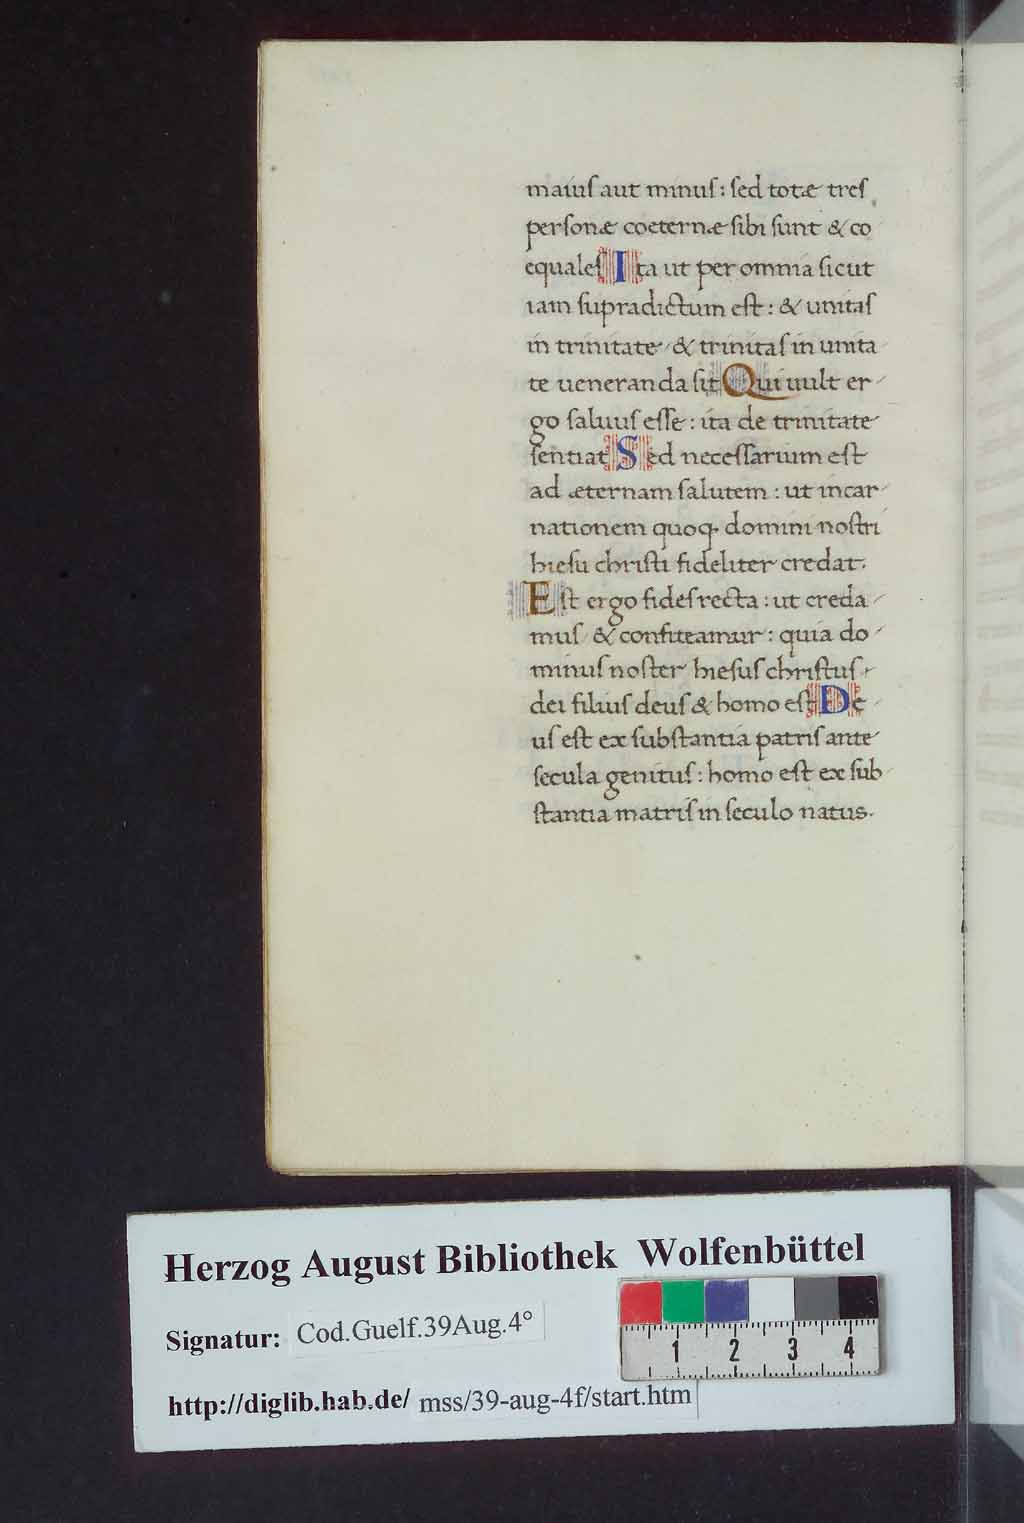 maiuſ aut minuſ: ſed totæ treſ
perſonæ coeternæ ſibi ſunt & co
equaleſ Ita ut per omnia ſicut
iam ſupradictum eſt: & unitaſ
in trinitate / & trinitaſ in unita
te ueneranda ſit Qui uult er-
go ſaluuſ eſſe: ita de trinitate
ſentiat Sed neceſſarium eſt
ad æternam ſalutem: ut incar-
nationem quoq. domini noſtri
hieſu chriſti fideliter credat.
Eſt ergo fideſ recta: ut creda-
muſ / & confiteamur: quia do-
minuſ noſter hieſuſ chriſtuſ
dei filiuſ deuſ & homo eſt De-
uſ eſt ex ſubſtantia patriſ ante
ſecula genituſ: homo eſt ex ſub-
ſtantia matriſ in ſeculo natus.
Herzog August Bibliothek Wolfenbüttel
Signatur: Cod.Guelf.39Aug.4°
1 2 3 4
http://diglib.hab.de/ mss/39-aug-4f/start.htm